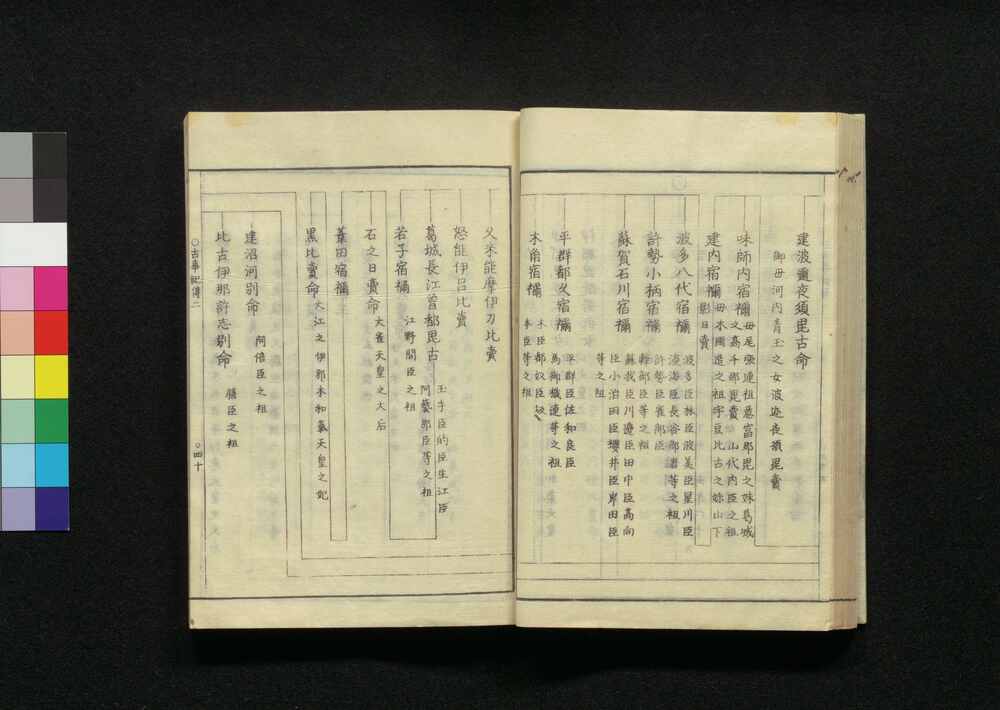 建波邇夜須毘古命
御母河内青玉之女波迩夜須毘賣
味師内宿禰
母尾張連祖意富那毘之妹葛城
之高千那毘賣 山代内臣之祖
建内宿禰
母木國造之祖宇豆比古之妹山下
影日賣
波多八代宿禰
波多臣林臣波美臣星川臣
淡海臣長谷部君等之祖
許勢小柄宿禰
許勢臣雀部臣
輕部臣等之祖
蘇賀石川宿禰
蘇我臣川邊臣田中臣高向
臣小治田臣櫻井臣岸田臣
等之祖
平群都久宿禰
平群臣佐和良臣
馬御樴連等之祖
木角宿禰
木臣都奴臣坂
本臣等之祖
久米能摩伊刀比賣
怒能伊呂比賣
葛城長江曾都毘古
玉手臣的臣生江臣
阿藝那臣等之祖
若子宿禰
江野間臣之祖
石之日賣命
大雀天皇之大后
葦田宿禰
黒比賣命
大江之伊邪本和氣天皇之妃
建沼河別命
阿倍臣之祖
比古伊那許志別命
膳臣之祖
○古事記傳二
○四十